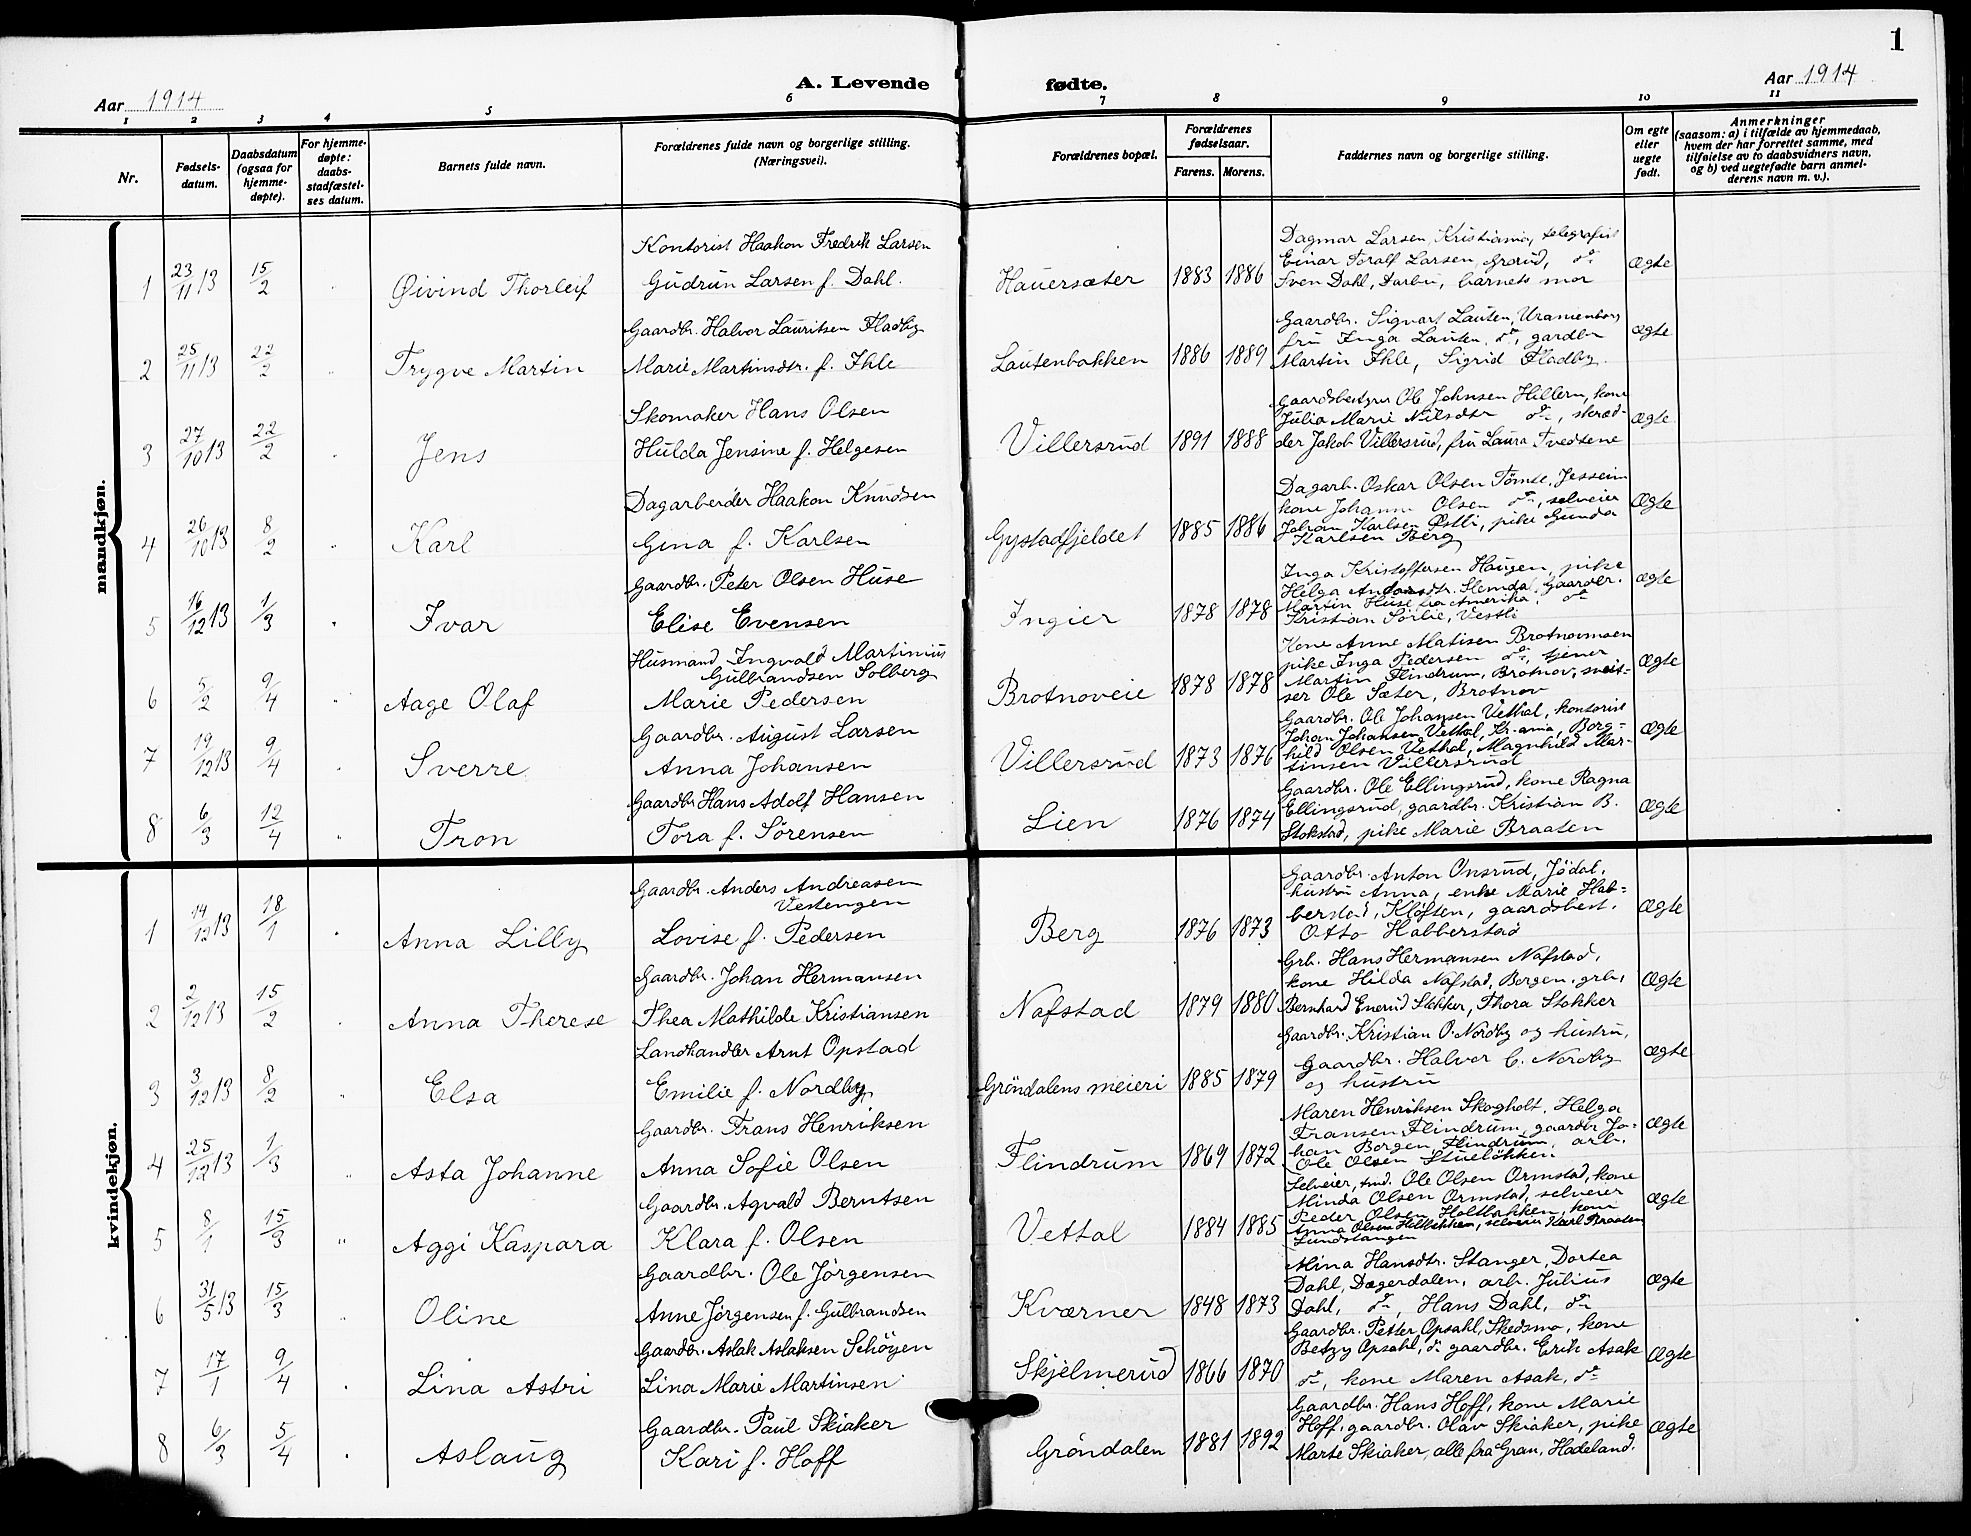 1
Aar 1914
A. Levende fødte.
Aar 1914
1 2 3 4 5 6 7 8 9 10 11
Nr.
Fødsels-
datum.
Daabsdatum
(ogsaa for
hjemme-
døpte).
For hjemme-
døpte:
daabs-
stadfæstel-
ses datum.
Barnets fulde navn.
Forældrenes fulde navn og borgerlige stilling.
(Næringsvei).
Forældrenes bopæl.
Forældrenes
fødselsaar.
Farens. Morens.
Faddernes navn og borgerlige stilling.
Om egte
eller
uegte
født.
Anmerkninger
(saasom: a) i tilfælde av hjemmedaab,
hvem der har forrettet samme, med
tilføielse av to daabsvidners navn,
og b) ved uegtefødte barn anmel-
derens navn m. v.).
mandkjøn.
1 23/11 13 15/2 Øivind Thorleif
Kontorist Haakon Fredrik Larsen
Gudrun Larsen f. Dahl.
Hauersæter 1883 1886
Dagmar Larsen, Kristiania, telegrafist
Einar Toralf Larsen, Grorud, do
Sven Dahl, Darbu, barnets mor
Ægte
2 25/11 13 22/2 " Trygve Martin
Gaardbr. Halvor Lauritsen Fladby
Marie Martinsdtr. f. Ihle
Lautenbakken 1886 1889
Gaardbr. Sigvart Lauten, Uranienborg
fru Inga Lauten, do, gardbr
Martin Ihle, Sigrid Fladby.
Ægte
3 27/10 13 22/2 Jens
Skomaker Hans Olsen
Hulda Jensine f. Helgesen
Villersrud 1891 1888
Gaardsbestyrer Ole Johnsen Hillern, kone
Julia Marie Nilsdtr do, skræd-
der Jakob Villersrud, fru Laura Tvedtene
Ægte
4 26/10 13 8/2 " Karl
Dagarbeider Haakon Knudsen
Gina f. Karlsen
Gystadfjeldet 1885 1886
Dagarb. Oskar Olsen Tömte, Jesseim
kone Johanne Olsen do, selveier
Johan Karlsen Østli, pike Gunda
Karlsen Berg
Ægte
5 16/12 13 1/3 " Ivar
Gaardbr. Peter Olsen Huse
Elise Evensen
Ingier 1878 1878
Inga Kristoffersen Haugen, pike
Helga Andersdtr. Slemdal, Gaardbr.
Martin Huse fra Amerika, do
Kristian Sörlie, Vestli
Ægte
6 5/2 9/4 " Aage Olaf
Husmand Ingvald Martinius
Gulbrandsen Solberg
Marie Pedersen
Brotnoveie 1878 1878
Kone Anne Matisen Brotnovmoen
pike Inga Pedersen do, tjener
Martin Flindrum, Brotnov, sveit-
ser Ole Sæter, Brotnov
Ægte
7 19/12 13 9/4 Sverre
Gaardbr. August Larsen
Anna Johansen
Villersrud 1873 1876
Gaardbr. Ole Johansen Vethal, kontorist
Johan Johansen Vethal, Kr.ania, Borg=
hild Olsen Vethal, Magnhild Mar-
tinsen Villersrud
Ægte
8 6/3 12/4 " Tron
Gaardbr Hans Adolf Hansen
Tora f. Sörensen
Lien 1876 1874
Gaardbr. Ole Ellingsrud, kone Ragna
Ellingsrud, gaardbr. Kristian B.
Stokstad, pike Marie Braaten
Ægte
kvindekjøn.
1 14/12 13 18/1 Anna Lilly
Gaardbr. Anders Andreasen
Vestengen
Lovise f. Pedersen
Berg 1876 1873
Gaardbr. Anton Onsrud, Jödal,
hustru Anna, enke Marie Hab=
berstad, Klöften, gaardsbest.
Otto Habberstad
Ægte
2 2/12 13 15/2 Anna Therese
Gaardbr. Johan Hermansen
Thea Mathilde Kristiansen
Nafstad 1879 1880
Grb. Hans Hermansen Nafstad,
kone Hilda Nafstad, Borgen, grb.
Bernhard Enerud Stokker, Thora Stokker
Ægte
3 3/12 13 8/2 " Elsa
Landhandler Arnt Opstad
Emilie f. Nordby
Gröndalens meieri 1885 1879
Gaardbr. Kristian O. Nordby og hustru,
Gaardbr. Halvor C. Nordby
og hustru
Ægte
4 25/12 13 1/3 " Asta Johanne
Gaardbr. Frans Henriksen
Anna Sofie Olsen
Flindrum 1869 1872
Maren Henriksen Skogholt, Helga
Fransen Flindrum, gaardbr Jo-
han Borgen Flindrum, arb.
Ole Olsen Stuelökken
Ægte
5 8/1 15/3 " Aggi Kaspara
Gaardbr. Agvald Berntsen
Klara f. Olsen
Vettal 1884 1885
Selveier, smd. Ole Olsen Ormstad, kone
Minda Olsen Ormstad, selveier
Peder Olsen Holtbakken, kone
Anna Olsen Holtbakken, selveier Karl Braaten
Lundstangen
Ægte
6 31/5 13 15/3 " Oline
Gaardbr. Ole Jörgensen
Anne Jörgensen f. Gulbrandsen
Kværner 1848 1873
Mina Hansdtr. Stanger, Dortea
Dahl, Dægerdalen, arb. Julius
Dahl, do, Hans Dahl, do
Ægte
7 17/1 9/4 Lina Astri
Gaardbr. Aslak Aslaksen Schöyen
Lina Marie Martinsen
Skjelmerud 1866 1870
Gaardbr. Petter Opsahl, Skedsmo, kone
Betzy Opsahl, do gaardbr. Erik Asak
do, kone Maren Asak, do
Ægte
8 6/3 5/4 Aslaug
Gaardbr. Paul Skiaker
Kari f. Hoff
Gröndalen 1881 1892
Gaardbr. Hans Hoff, kone Marie
Hoff, gaardbr. Olav Skiaker, pike
Marte Skiaker, alle fra Gran, Hadeland.
Ægte